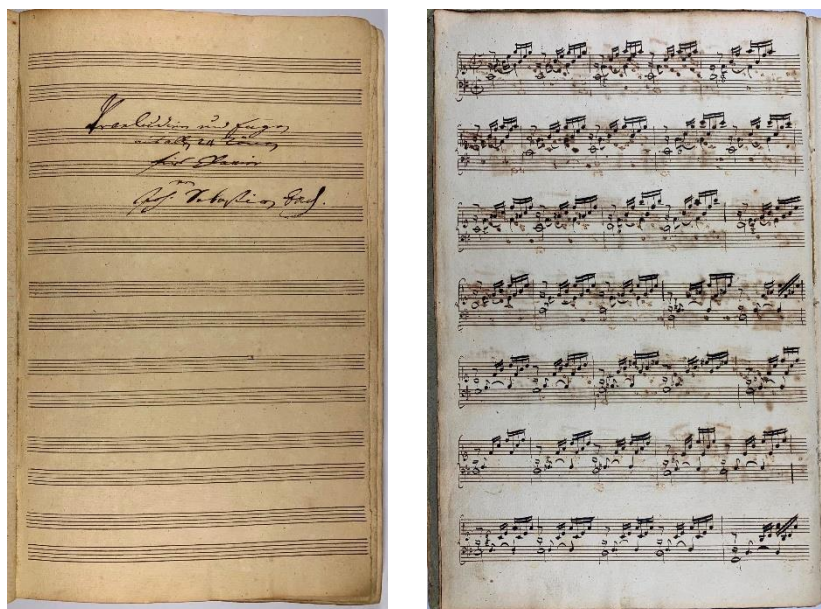 Praeludien und Fugen
aus allen 24 Tönen
für Clavier
von
Joh. Sebastian Bach.